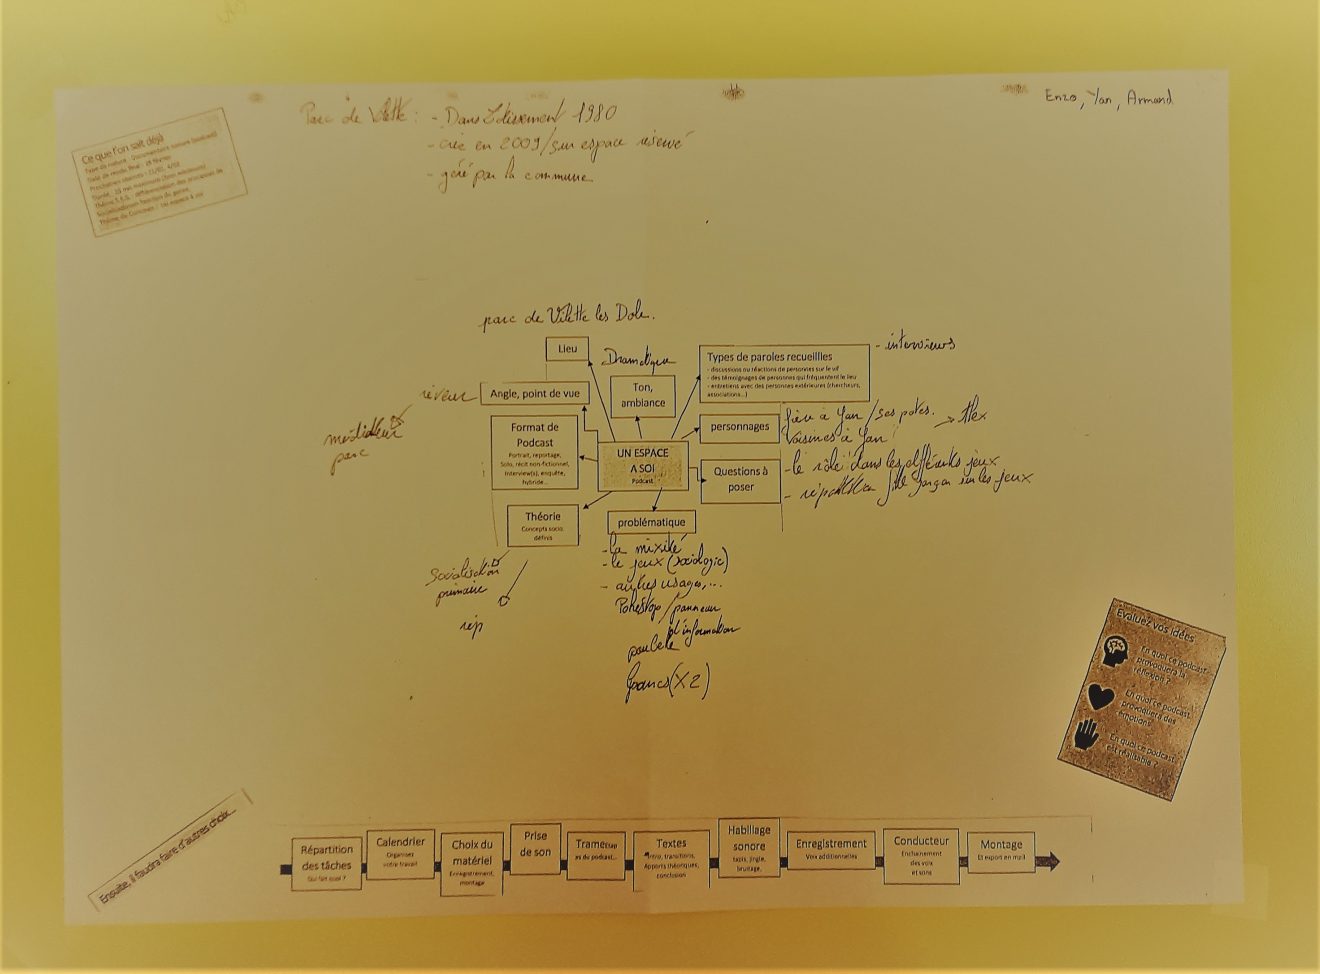 Enzo, Yan, Armand
Parc de Vilette : - Dans Lotissement 1980
- crée en 2009/sur espace réservé
- géré par la commune
Ce que l'on sait déjà
parc de Vilette les Dole.
Lieu
Dramatique
Ton,
ambiance
Types de paroles recueillies
- discussions ou réactions de personnes sur le vif
- des témoignages de personnes qui fréquentent le lieu
- entretiens avec des personnes extérieures (chercheurs,
associations...)
- interviews
rêveur
Angle, point de vue
parc
Format de
Podcast
Portrait, reportage,
Solo, récit non-fictionnel,
Interview(s), enquête,
hybride...
UN ESPACE
A SOI
Podcast
personnages
à Yan / ses potes.
Voisines à Yan
Questions à
poser
- le rôle dans les différents jeux
- sur les jeux
Théorie
Concepts socio.
définis
Socialisation
primaire
rép
problématique
- la mixité
- le jeux (sociologie)
- autres usages,...
Pokéstop / panneau
d'information
poubelle
bancs (x2)
Evaluez vos idées
En quoi ce podcast
provoquera la
réflexion ?
En quoi ce podcast
provoquera des
émotions?
En quoi ce podcast
est réalisable ?
Ensuite, il faudra faire d'autres choix...
Répartition
des tâches
Qui fait quoi ?
Calendrier
Organisez
votre travail
Choix du
matériel
Enregistrement,
montage
Prise
de son
Trame
du podcast...
Textes
Intro, transitions,
Apports théoriques,
conclusion
Habillage
sonore
tapis, jingle,
bruitage,
Enregistrement
Voix additionnelles
Conducteur
Enchainement
des voix
et sons
Montage
Et export en mp3